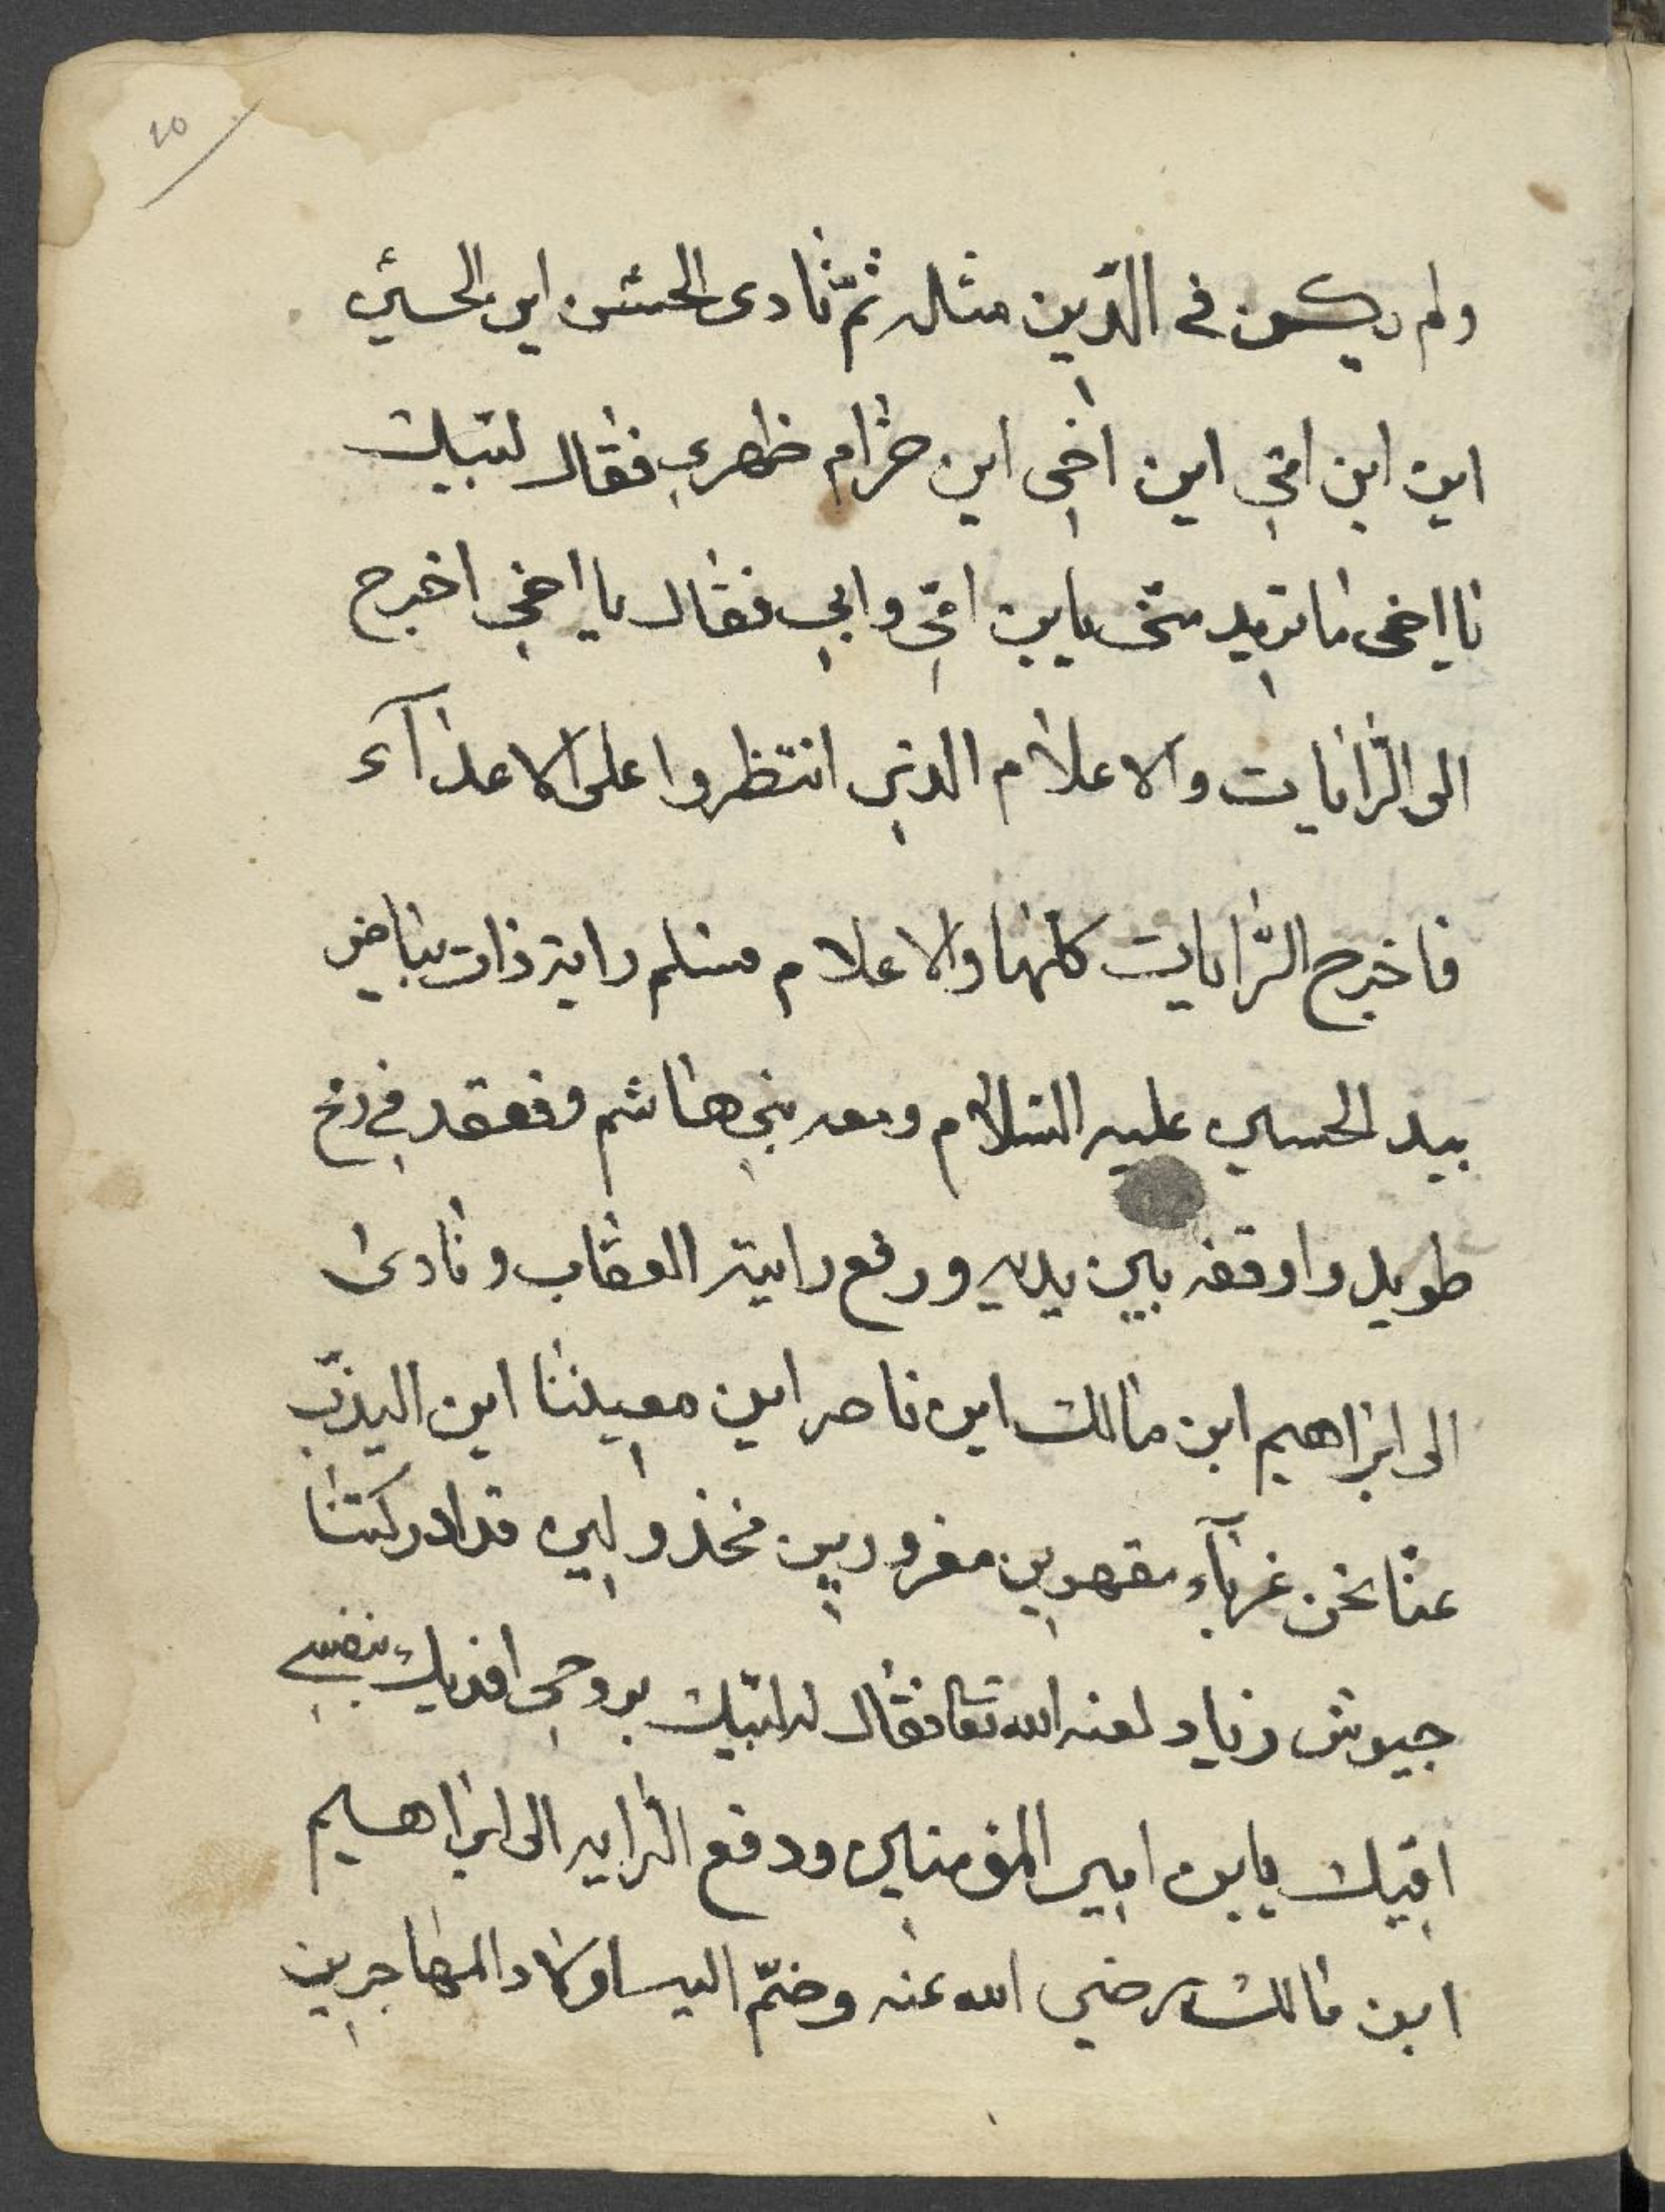 ٢٥
ولم يكن في الدّين مثله ثمّ نادى الحسن اين الحسين
اين ابن امّي اين اخي اين حزام ظهري فقال لبّيك
يا اخي ما تريد منّي يابن امّي وابي فقال يا اخي اخرج
الى الرّايات والاعلام الذي انتظروا على الاعدآء
فاخرج الرّايات كلّها والاعلام مسلم راية ذات بياض
بيد الحسين عليه السلام ومعه بني هاشم وفعقد في رمح
طويل واوقفه بين يديه ورفع راية العقاب ونادى
الى ابراهيم ابن مالك اين ناصر اين معيننا اين اليذبّ
عنّا نحن غربآء مقهوين مغرورين مخذولين قد ادركتنا
جيوش زياد لعنه الله تعا فقال له لبّيك بروحي افديك بنفسي
اقيك يابن امير المؤمنين ودفع الرّايه الى ابراهيم
ابن مالك رضي الله عنه وضمّ اليه اولاد المهاجرين